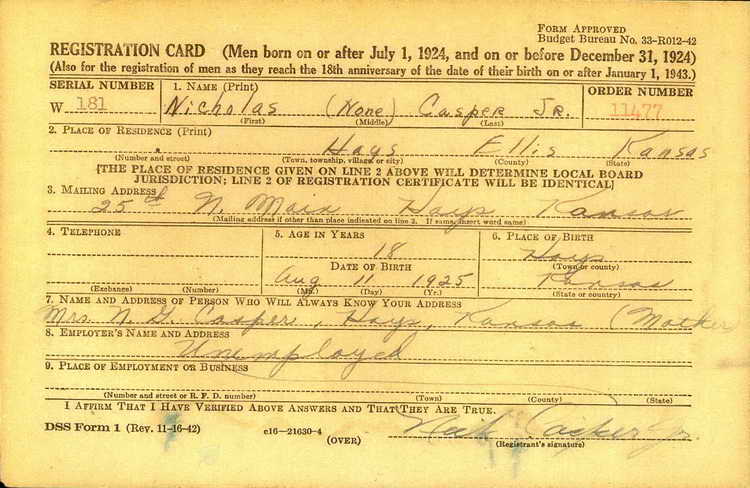 FORM APPROVED
BUDGET BUREAU NO. 33-R012-42
REGISTRATION CARD (Men born on or after July 1, 1924, and on or before December 31, 1924)
(Also for the registration of men as they reach the 18th anniversary of the date of their birth on or after January 1, 1943.)
SERIAL NUMBER 1. NAME (Print) ORDER NUMBER
W 181 Nicholas (None) Casper Jr. 11477
(First) (Middle) (Last)
2. PLACE OF RESIDENCE (Print)
Hays Ellis Kansas
(Number and street) (Town, township, village, or city) (County) (State)
[THE PLACE OF RESIDENCE GIVEN ON LINE 2 ABOVE WILL DETERMINE LOCAL BOARD
JURISDICTION; LINE 2 OF REGISTRATION CERTIFICATE WILL BE IDENTICAL]
3. MAILING ADDRESS
25th N. Main Hays Kansas
(Mailing address if other than place indicated on line 2. If same, insert word same)
4. TELEPHONE 5. AGE IN YEARS 6. PLACE OF BIRTH
18 Hays
DATE OF BIRTH (Town or county)
Aug 11 1925 Kansas
(Exchange) (Number) (Mo.) (Day) (Yr.) (State or country)
7. NAME AND ADDRESS OF PERSON WHO WILL ALWAYS KNOW YOUR ADDRESS
Mrs. N. G. Casper, Hays, Kansas (Mother
8. EMPLOYER'S NAME AND ADDRESS
Unemployed
9. PLACE OF EMPLOYMENT OR BUSINESS
(Number and street or R. F. D. number) (Town) (County) (State)
I AFFIRM THAT I HAVE VERIFIED ABOVE ANSWERS AND THAT THEY ARE TRUE.
DSS Form 1 (Rev. 11-16-42) c16-21630-4 Nick Casper Jr.
(OVER) (Registrant's signature)